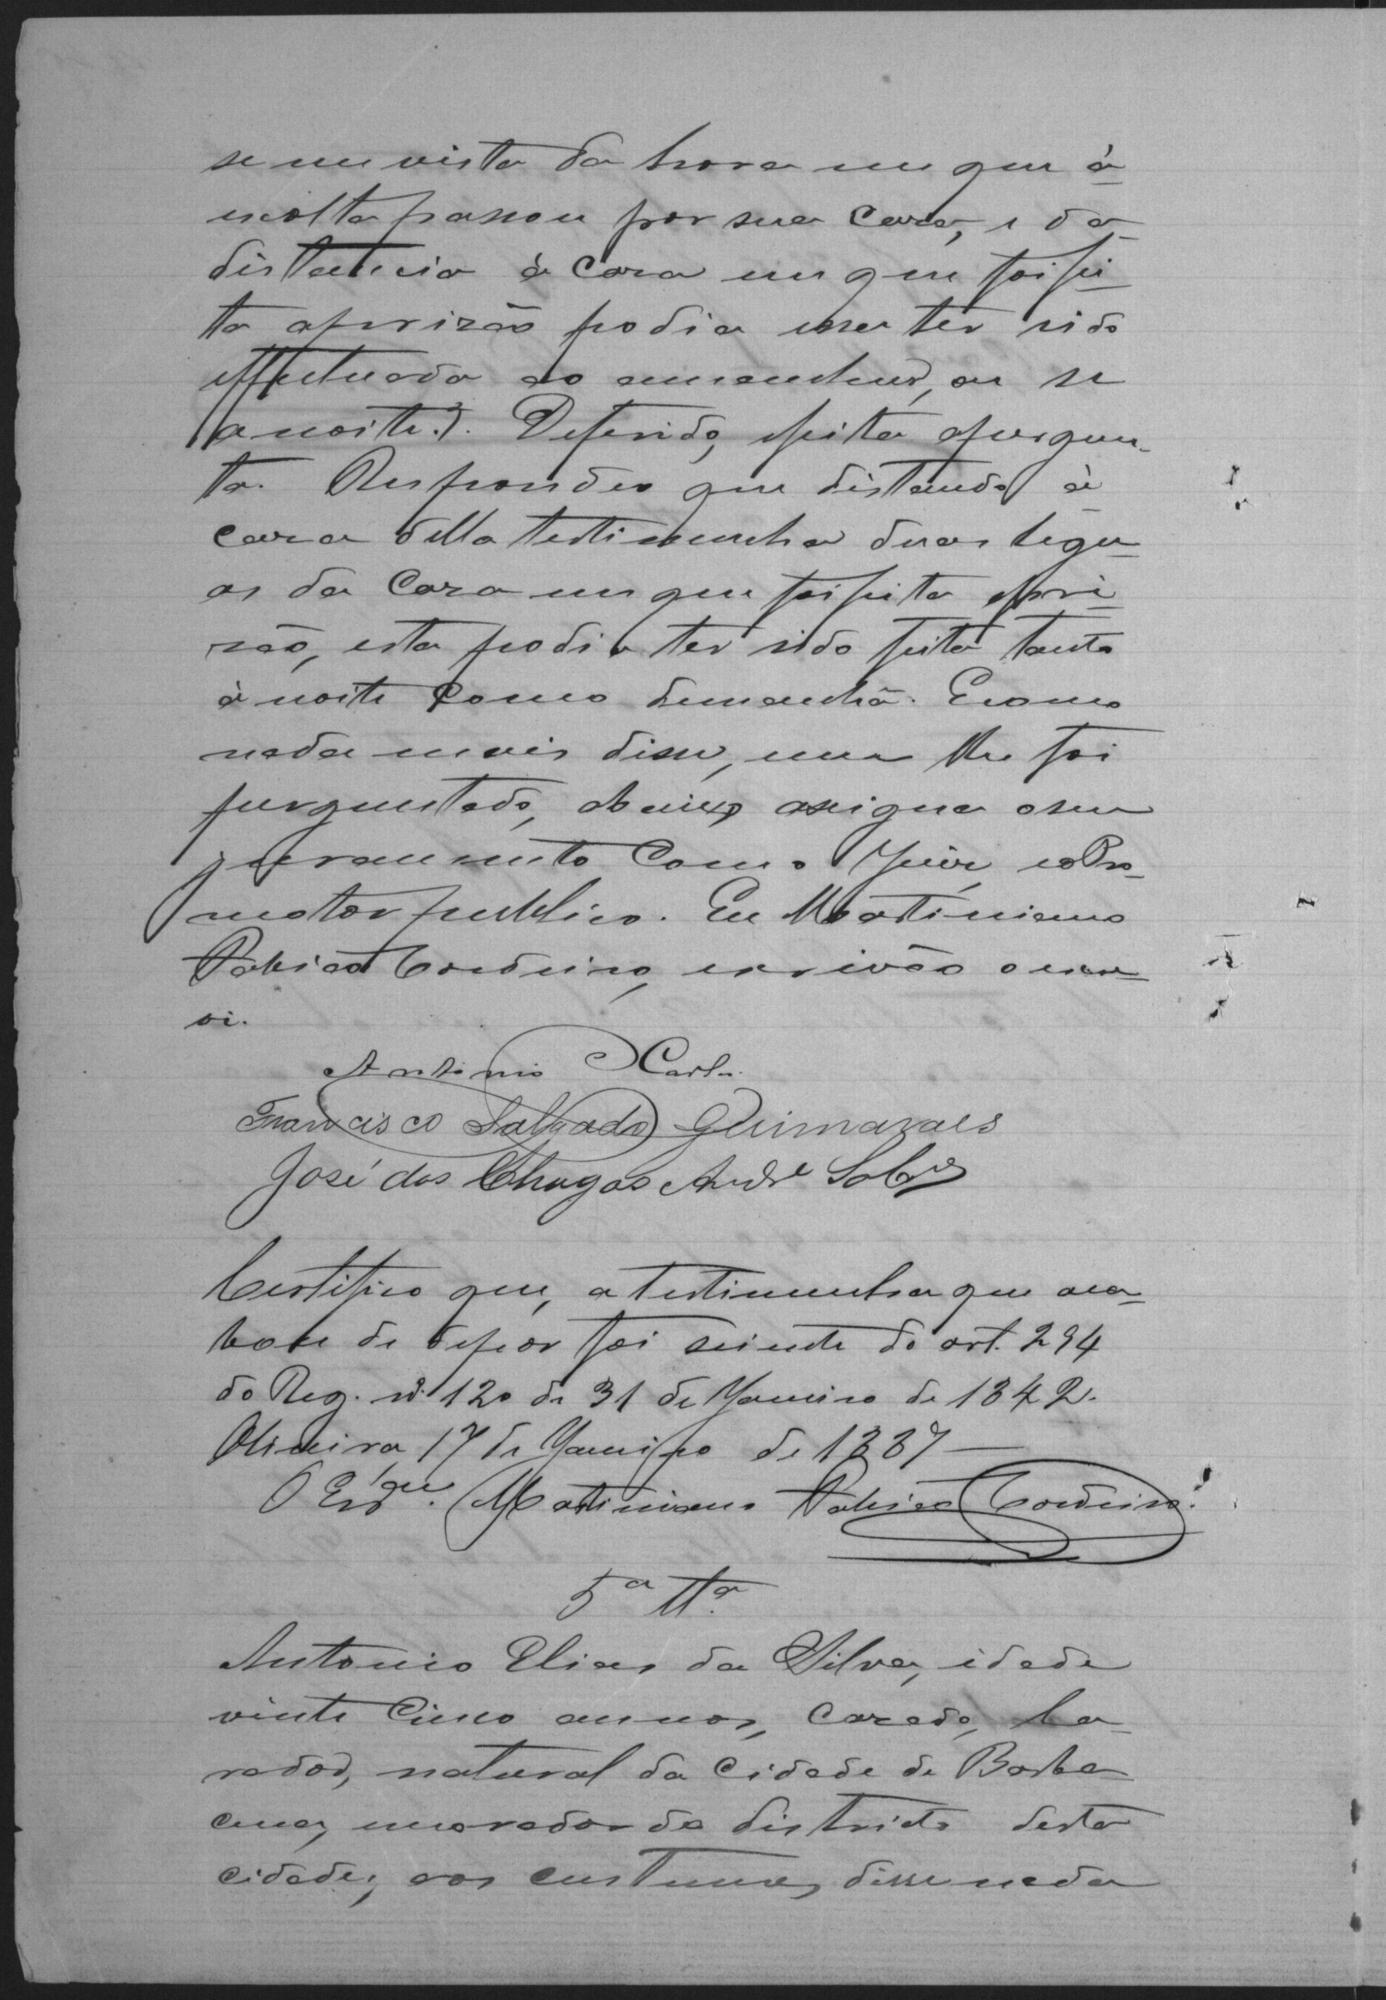 se em vista da hora em que a
escolta passou por sua casa, e da
distancia á casa em que foi fei-
ta a prizão podia essa ter sido
effectuada ao amanhecer, ou se
a noite?). Deferido, e feita a pergun-
ta. Respondeo que distando a
casa della testimunha duas legu-
as da casa em que foi feita a pri-
zão, esta podia ter sido feita tanto
á noite como de manhã. E como
nada mais disse, nem lhe foi
perguntado, abaixo assigna o seu
juramento com o Juiz, e o Pro-
motor publico. Eu Martiniano
Cordeiro, escrivão o escre-
vi.
Antonio
Francisco Salgado Guimaraes
José das Chagas Andr.e Sobr.o
Certifico que, a testimunha que aca-
bou de depor foi sciente do art. 294
do Reg. nº. 120 de 31 de Janeiro de 1842.
Oliveira 17 de Janeiro de 1887
O Martiniano Cordeiro.
5ª Ttª.
Antonio Elias da Silva, idade
vinte cinco annos, casado, la-
vrador, natural da cidade de Barba-
cena, morador do districto desta
cidade; aos custumes, disse nada